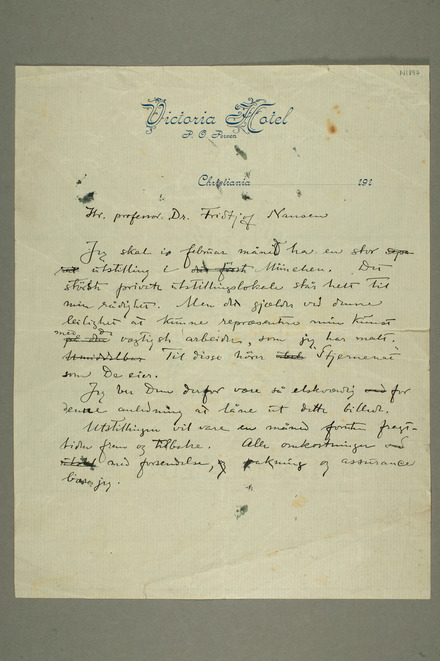 N1892
Victoria Hotel
P. O. Persen
Christiania 191
Hr. professor Dr. Fridtjof Nansen
Jeg skal i februar måned ha en stor sepa-
rat utstilling i München. Det
største private utstillingslokale står helt til
min rådighet. Men det gjælder ved denne
leilighet at kunne repræsentere min kunst
med
på de vægtigste arbeider, som jeg har malt.
Til disse hører "Stjernenat"
som De eier.
Jeg ber Dem derfor være så elskværdig for
denne anledning at låne ut dette billede.
Utstillingen vil vare en måned foruten fragt-
tiden frem og tilbake. Alle omkostninger
med forsendelse, pakning og assurance
bærer jeg.